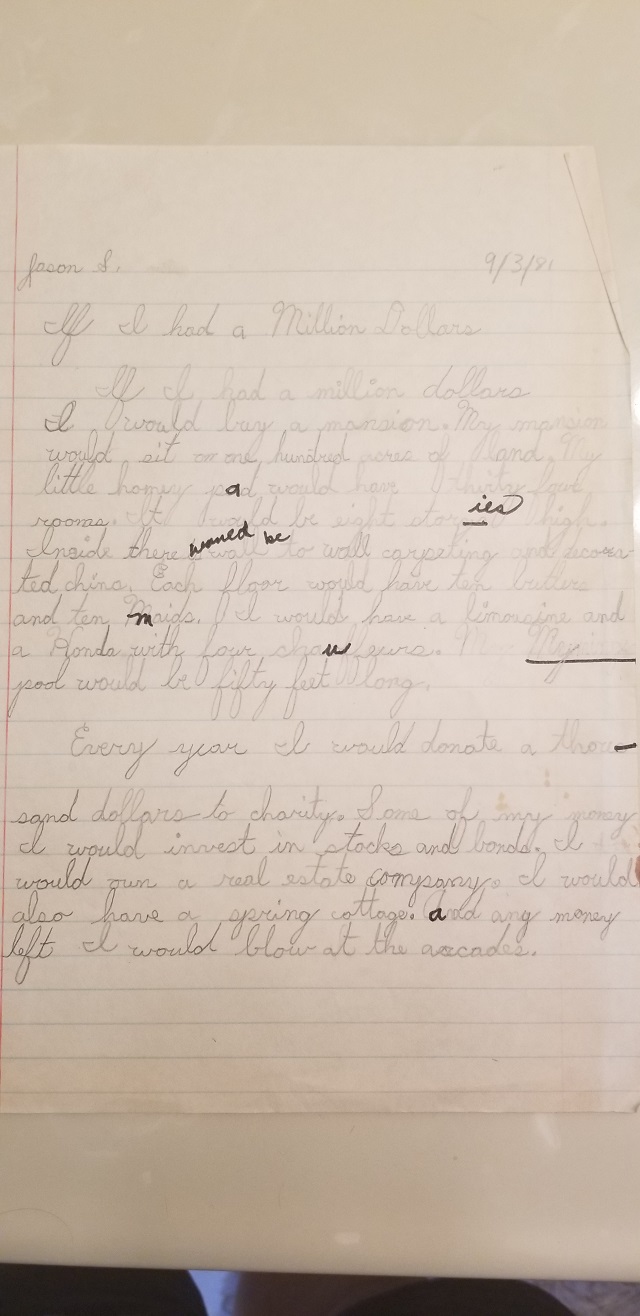 Jason S. 9/3/81
If I had a Million Dollars
If I had a million dollars
I would buy a mansion. My mansion
would sit on one hundred acres of land. My
little homey pad would have thirty four
rooms. It would be eight stories high.
Inside there would be wall to wall carpeting and decora-
ted china. Each floor would have ten butlers
and ten maids. I would have a limousine and
a Honda with four chauffeurs. My
pool would be fifty feet long.
Every year I would donate a thou-
sand dollars to charity. Some of my money
I would invest in stocks and bonds. I
would own a real estate company. I would
also have a spring cottage. and any money
left I would blow at the arcades.